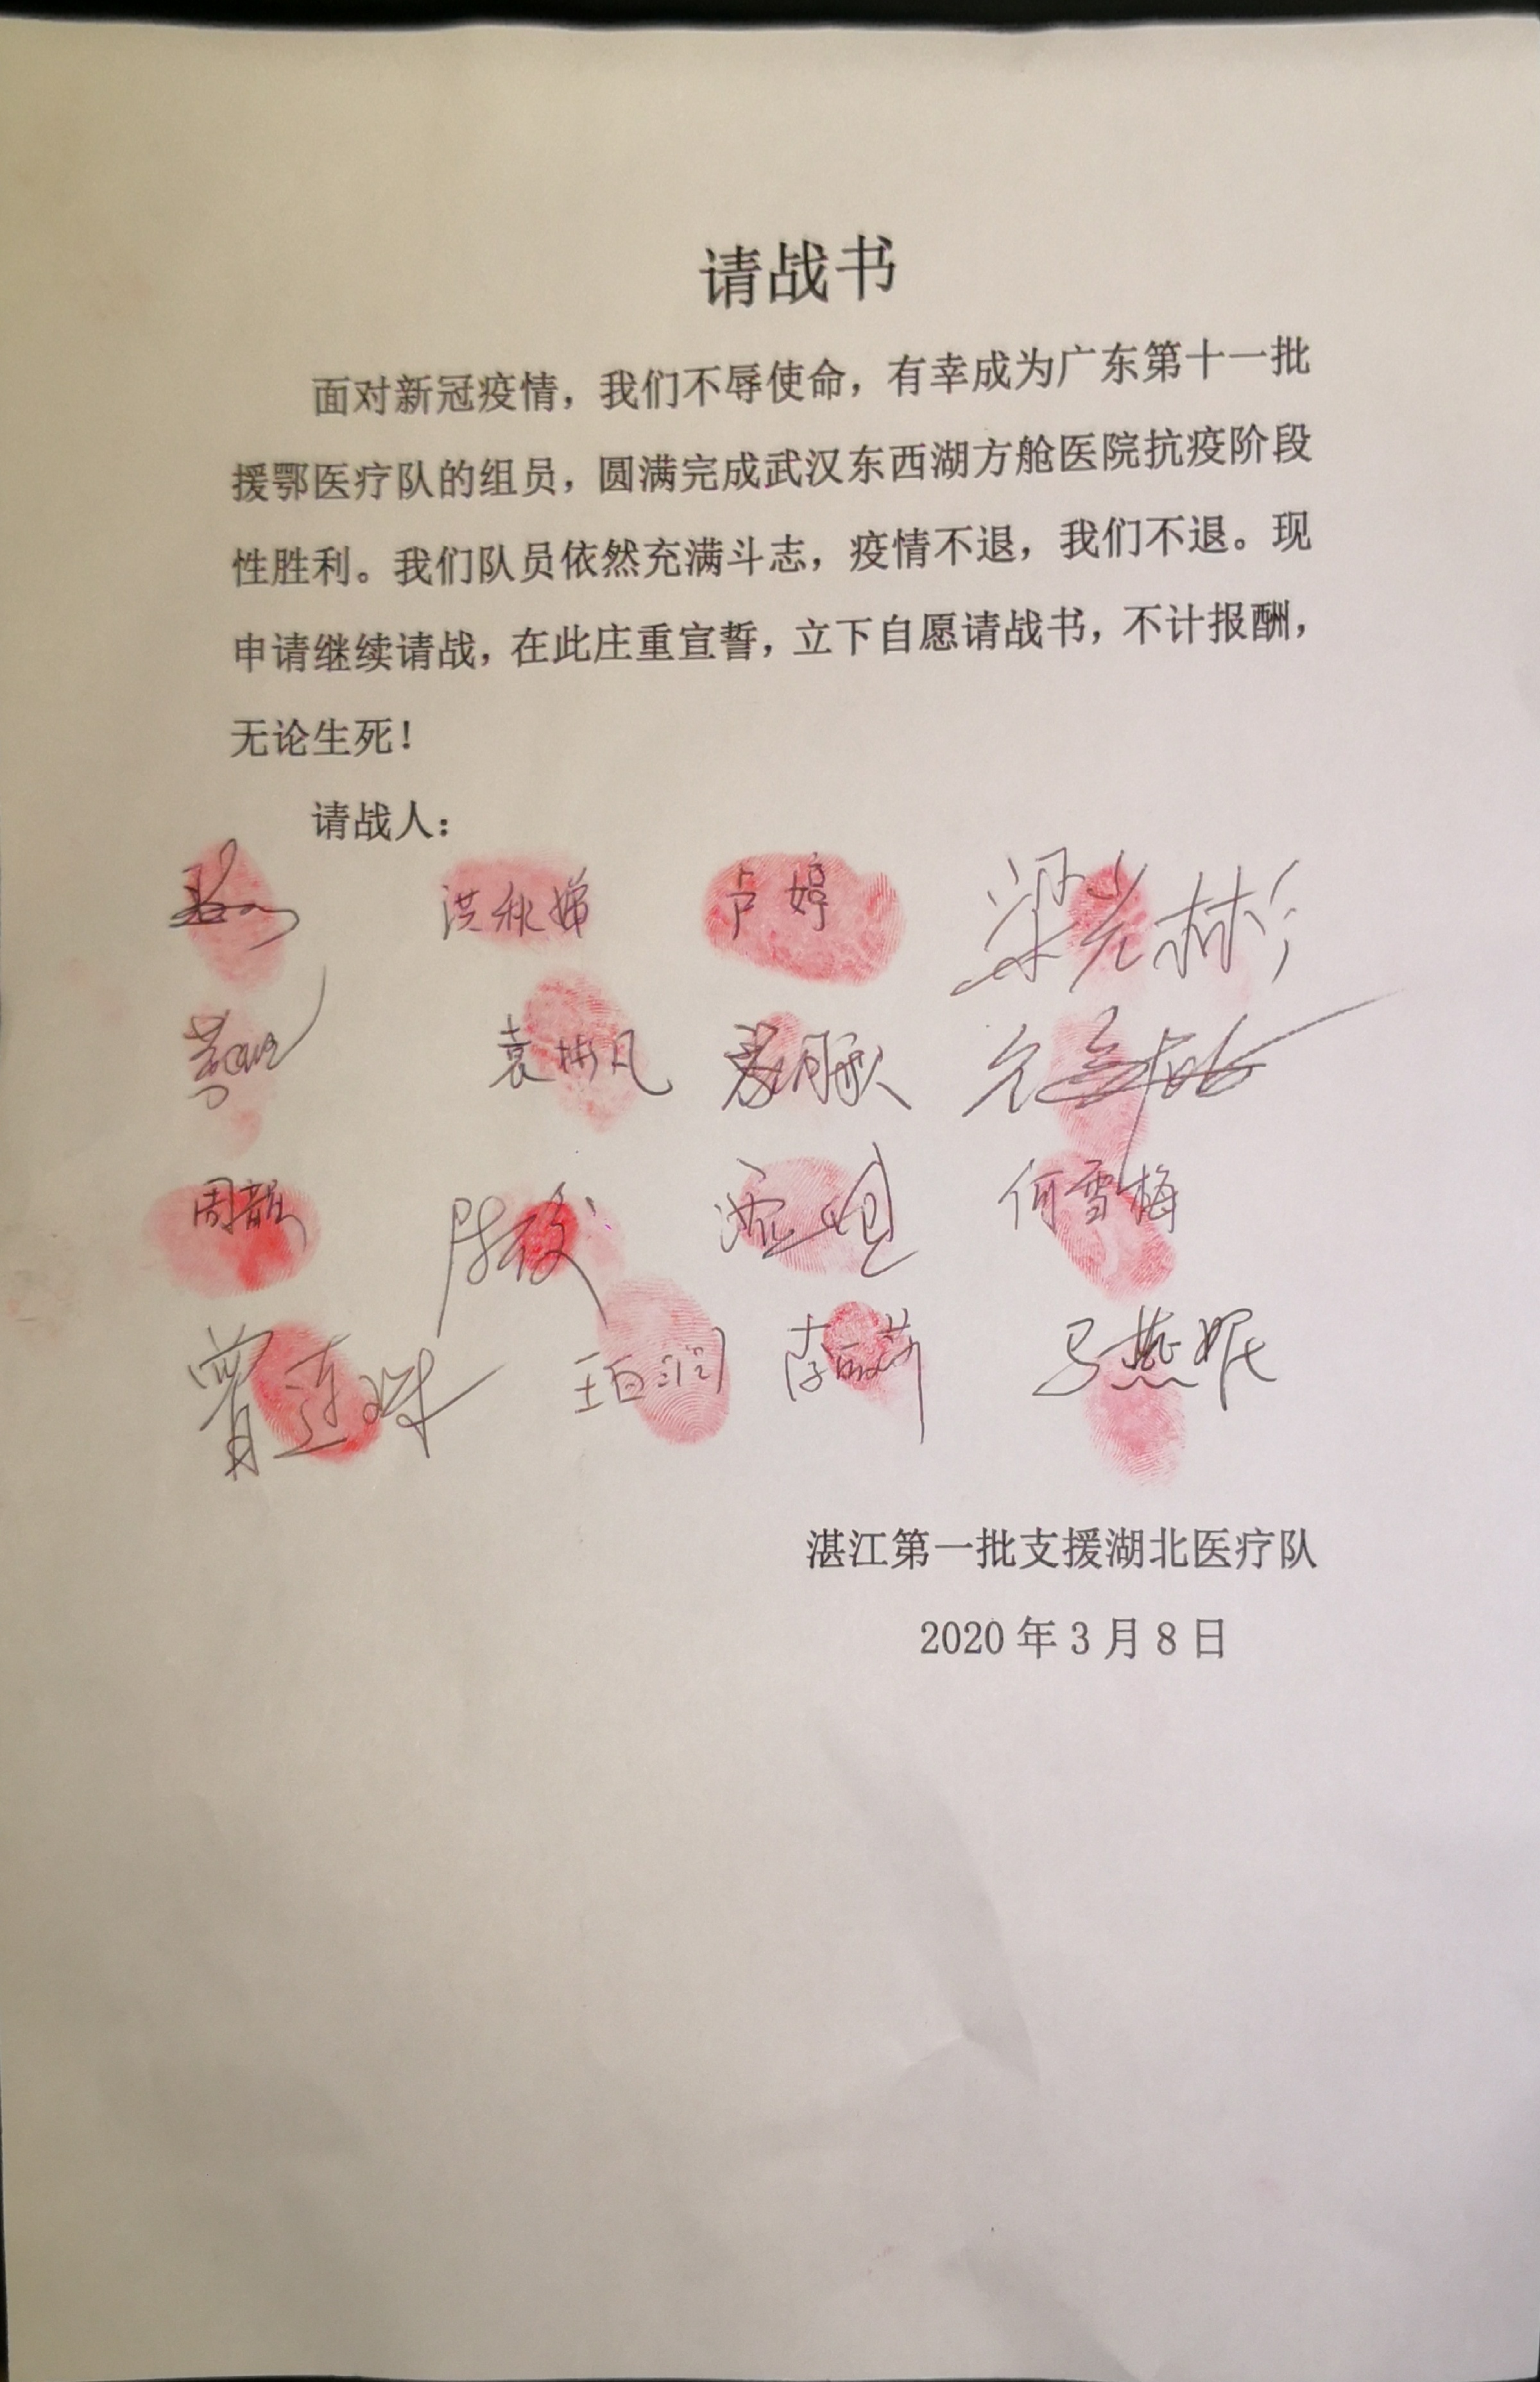 请战书
面对新冠疫情，我们不辱使命，有幸成为广东第十一批
援鄂医疗队的组员，圆满完成武汉东西湖方舱医院抗疫阶段
性胜利。我们队员依然充满斗志，疫情不退，我们不退。现
申请继续请战，在此庄重宣誓，立下自愿请战书，不计报酬，
无论生死！
请战人：
洪秋娣 卢婷 梁光彬
袁彬凡
周韻 何雪梅
曾连珠 李丽莉 马燕妮
湛江第一批支援湖北医疗队
2020 年 3 月 8 日